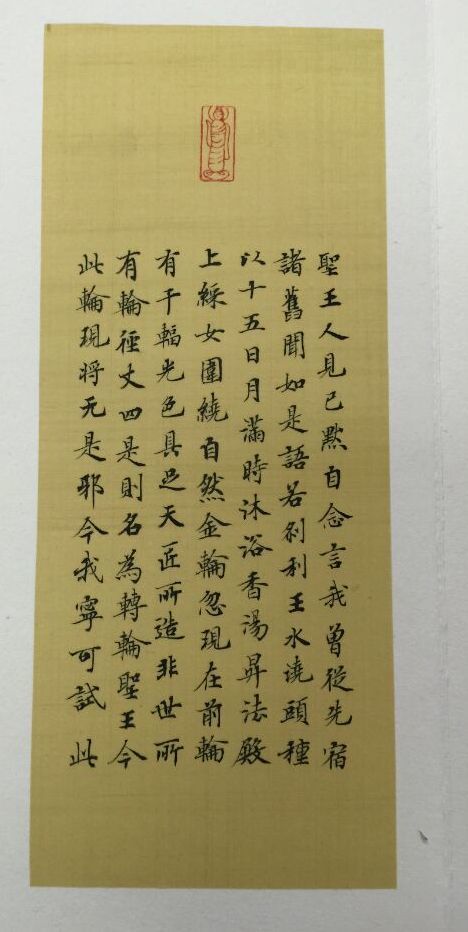 聖王人見已默自念言我曾從先宿
諸舊聞如是語若刹利王水澆頭種
以十五日月滿時沐浴香湯昇法殿
上綵女圍繞自然金輪忽現在前輪
有千輻光色具足天匠所造非世所
有輪徑丈四是則名為轉輪聖王今
此輪現将无是耶今我寧可試此